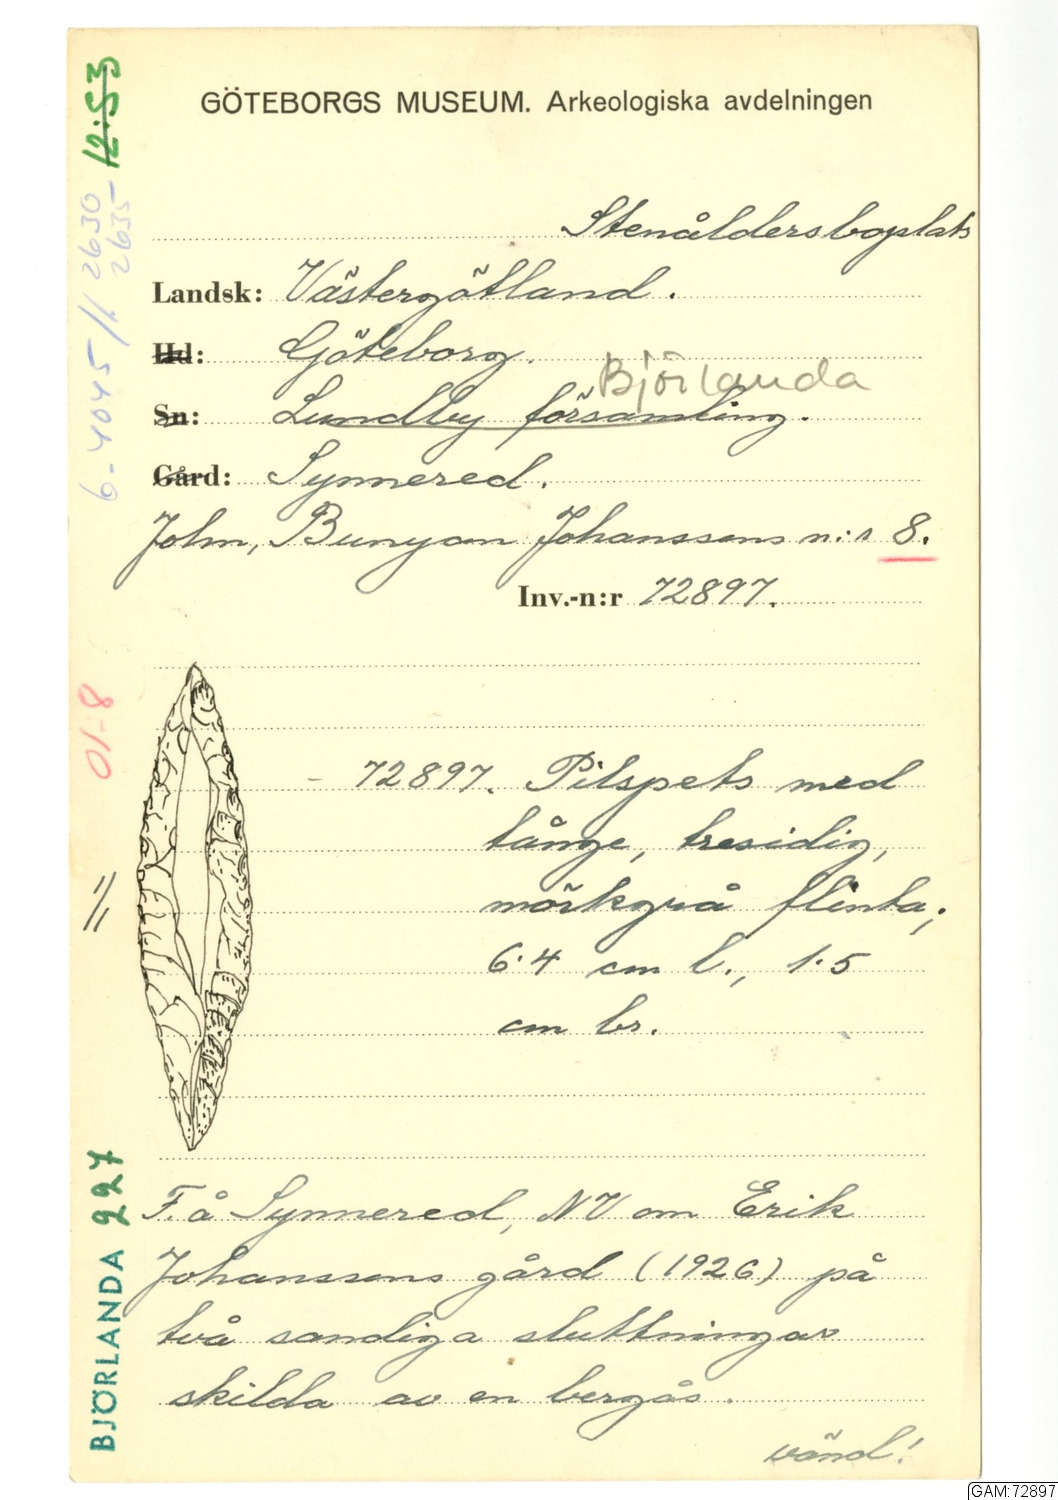 GÖTEBORGS MUSEUM. Arkeologiska avdelningen
Stenåldersboplats
Landsk: Västergötland.
Hd: Göteborg.
Björlanda
Sn: Lundby församling.
Gård: Synnered.
John, Bunyan Johanssons n:r 8.
Inv.-n:r 72897.
72897. Pilspets med
tånge, tresidig,
mörkgrå flinta;
6.4 cm l., 1.5
cm br.
F. å Synnered, NV om Erik
Johanssons gård (1926) på
två sandiga sluttningar
skilda av en bergås.
vänd!
12:53
6-4045 // 2630
2635
01-8
//
BJÖRLANDA 227
GAM:72897